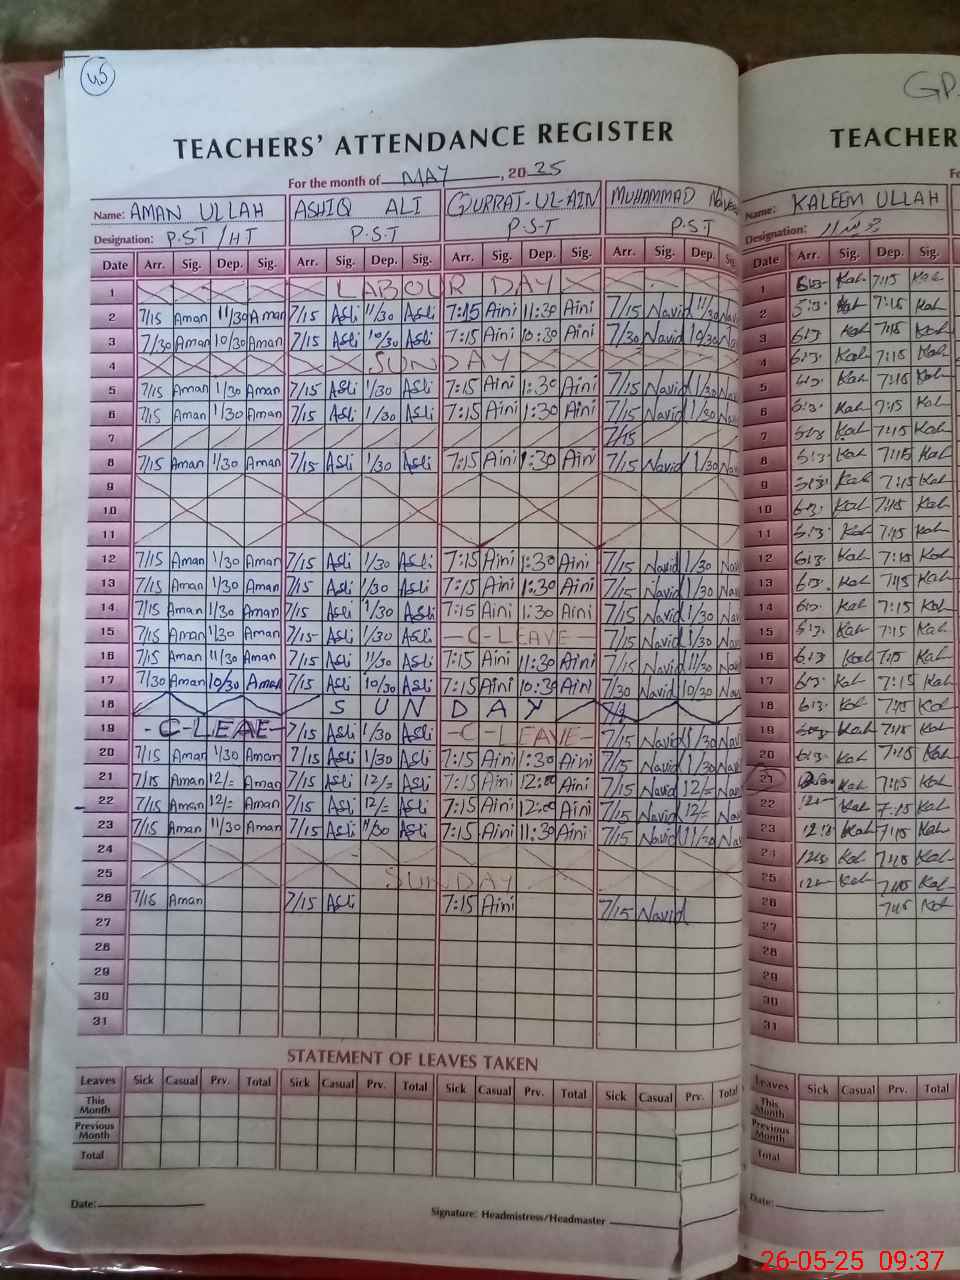 45
TEACHERS' ATTENDANCE REGISTER
For the month of MAY, 2025
Name: AMAN ULLAH ASHIQ ALI QURRAT-UL-AIN MUHAMMAD
Designation: P.S.T / HT P.S.T P.S-T P.S.T
Date Arr. Sig. Dep. Sig. Arr. Sig. Dep. Sig. Arr. Sig. Dep. Sig. Arr. Sig. Dep. Sig.
1 LABOUR DAY
2 7/15 Aman 11/30 Aman 7/15 Asli 11/30 Asli 7:15 Aini 11:30 Aini 7/15 Navid 11/30
3 7/30 Aman 10/30 Aman 7/15 Asli 10/30 Asli 7:15 Aini 10:30 Aini 7/30 Navid 10/30
4 SUNDAY
5 7/15 Aman 1/30 Aman 7/15 Asli 1/30 Asli 7:15 Aini 1:30 Aini 7/15 Navid 1/30
6 7/15 Aman 1/30 Aman 7/15 Asli 1/30 Asli 7:15 Aini 1:30 Aini 7/15 Navid 1/30
7 7/15
8 7/15 Aman 1/30 Aman 7/15 Asli 1/30 Asli 7:15 Aini 1:30 Aini 7/15 Navid 1/30
9
10
11
12 7/15 Aman 1/30 Aman 7/15 Asli 1/30 Asli 7:15 Aini 1:30 Aini 7/15 Navid 1/30
13 7/15 Aman 1/30 Aman 7/15 Asli 1/30 Asli 7:15 Aini 1:30 Aini 7/15 Navid 1/30
14 7/15 Aman 1/30 Aman 7/15 Asli 1/30 Asli 7:15 Aini 1:30 Aini 7/15 Navid 1/30
15 7/15 Aman 1/30 Aman 7/15 Asli 1/30 Asli -C-LEAVE- 7/15 Navid 1/30
16 7/15 Aman 11/30 Aman 7/15 Asli 11/30 Asli 7:15 Aini 11:30 Aini 7/15 Navid 11/30
17 7/30 Aman 10/30 Aman 7/15 Asli 10/30 Asli 7:15 Aini 10:30 Aini 7/30 Navid 10/30
18 SUNDAY
19 -C-LEAE- 7/15 Asli 1/30 Asli -C-LEAVE- 7/15 Navid 1/30
20 7/15 Aman 1/30 Aman 7/15 Asli 1/30 Asli 7:15 Aini 1:30 Aini 7/15 Navid 1/30
21 7/15 Aman 12/= Aman 7/15 Asli 12/= Asli 7:15 Aini 12:00 Aini 7/15 Navid 12/=
22 7/15 Aman 12/= Aman 7/15 Asli 12/= Asli 7:15 Aini 12:00 Aini 7/15 Navid 12/=
23 7/15 Aman 11/30 Aman 7/15 Asli 11/30 Asli 7:15 Aini 11:30 Aini 7/15 Navid 11/30
24
25 SUNDAY
26 7/15 Aman 7/15 Asli 7:15 Aini 7/15 Navid
27
28
29
30
31
STATEMENT OF LEAVES TAKEN
Leaves Sick Casual Prv. Total Sick Casual Prv. Total Sick Casual Prv. Total Sick Casual Prv. Total
This Month
Previous Month
Total
Date:
Signature: Headmistress/Headmaster
TEACHER
Name: KALEEM ULLAH
Designation:
Date Arr. Sig. Dep. Sig.
1 Kah 7:15 Kah
2 Kah 7:15 Kah
3 Kah 7:15 Kah
4 Kah 7:15 Kah
5 Kah 7:15 Kah
6 Kah 7:15 Kah
7 Kah 7:15 Kah
8 Kah 7:15 Kah
9 Kah 7:15 Kah
10 Kah 7:15 Kah
11 Kah 7:15 Kah
12 Kah 7:15 Kah
13 Kah 7:15 Kah
14 Kah 7:15 Kah
15 Kah 7:15 Kah
16 Kah 7:15 Kah
17 Kah 7:15 Kah
18 Kah 7:15 Kah
19 Kah 7:15 Kah
20 Kah 7:15 Kah
21 Kah 7:15 Kah
22 Kah 7:15 Kah
23 Kah 7:15 Kah
24 Kah 7:15 Kah
25 Kah 7:15 Kah
26 7:15 Kah
27
28
29
30
31
Leaves Sick Casual Prv. Total
This Month
Previous Month
Total
Date:
26-05-25 09:37